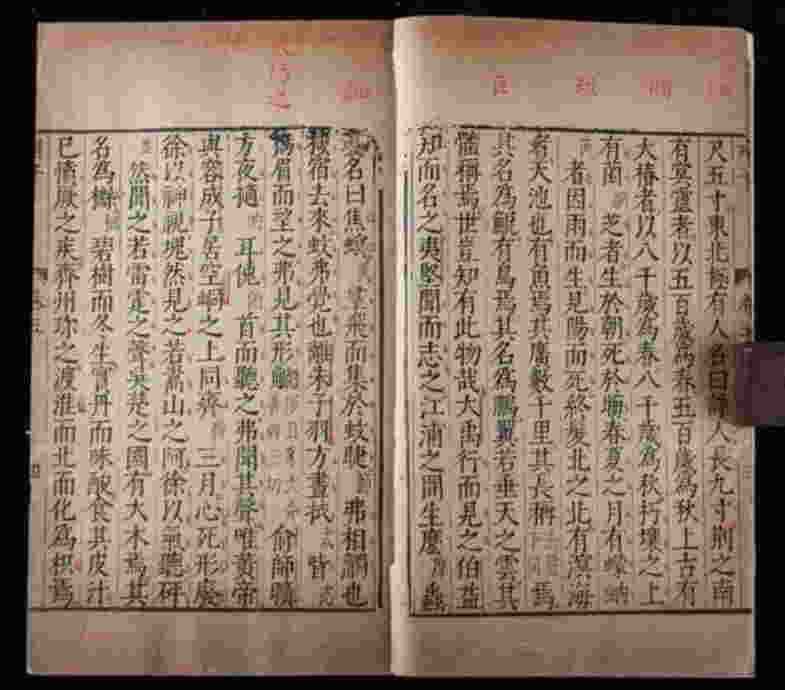 尺五寸東北極有人名曰諍人長九寸荆之南
有冥靈者以五百歲為春五百歲為秋上古有
大椿者以八千歲為春八千歲為秋朽壤之上
有菌芝者生於朝死於晦春夏之月有蠓蚋
者因雨而生見陽而死終髮北之北有溟海
者天池也有魚焉其廣數千里其長稱焉
其名為鯤有鳥焉其名為鵬翼若垂天之雲其
體稱焉世豈知有此物哉大禹行而見之伯益
知而名之夷堅聞而志之江浦之間生麼蟲
名曰焦螟羣飛而集於蚊睫弗相觸也
栖宿去來蚊弗覺也離朱子羽方晝拭眥
揚眉而望之弗見其形俞師曠
方夜擿耳俛首而聽之弗聞其聲唯黃帝
與容成子居空峒之上同齋三月心死形廢
徐以神視塊然見之若嵩山之阿徐以氣聽砰
然聞之若雷霆之聲吳楚之國有大木焉其
名為櫾碧樹而冬生實丹而味酸食其皮汁
已憤厥之疾齊州珍之渡淮而北而化為枳焉